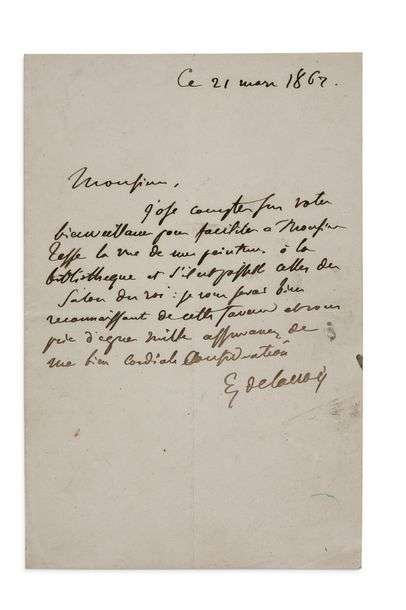 Ce 21 mars 186
Monsieur,
J'ose compter sur votre
bienveillance pour faciliter à Monsieur
la vue de mes peintures à la
bibliothèque et s'il est possible celles du
Salon du roi : je vous serais bien
reconnaissant de cette faveur et vous
prie d'agréer mille assurances de
ma bien cordiale considération
Eg Delacroix